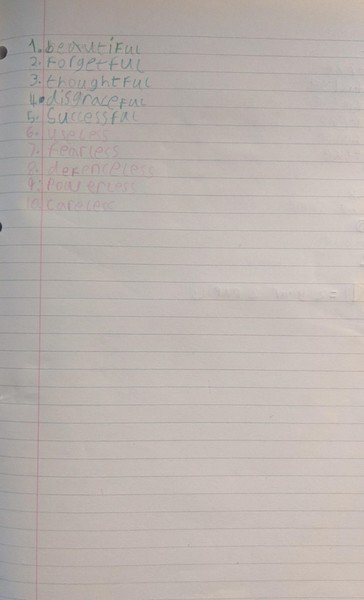 1. beautiful
2. Forgetful
3. thoughtful
4. disgraceful
5. Successful
6. useless
7. fearless
8. defenceless
9. Powerless
10. Careless